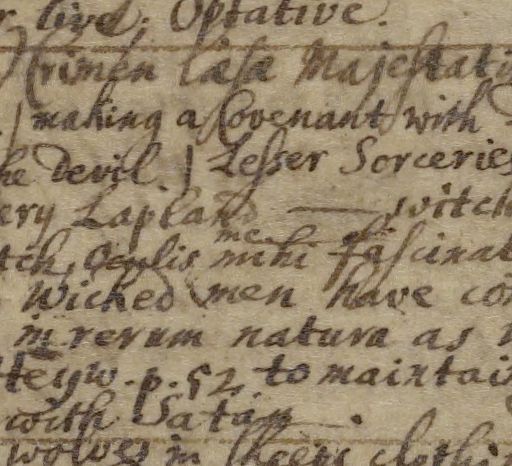 r lived, Optative.
Crimen læsæ Majestati
making a Covenant with
he Devil. | Lesser Sorceries
ery Lapland — switch
tch, Oculis mihi me fascinat
Wicked men have con
in rerum natura as
Heyw. p. 52 to maintain
with Satan
wolves in sheeps clothi